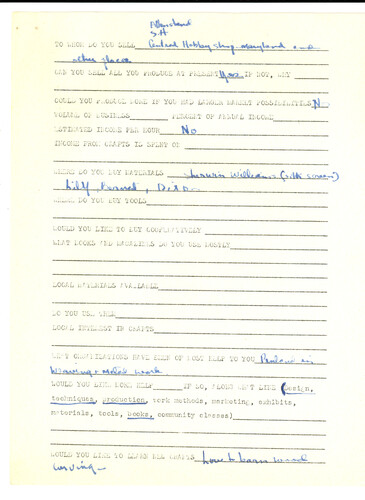 TO WHOM DO YOU SELL Central Hobby Shop, Maryland and
other places
CAN YOU SELL ALL YOU PRODUCE AT PRESENT yes IF NOT, WHY
COULD YOU PRODUCE MORE IF YOU HAD LARGER MARKET POSSIBILITIES No
VOLUME OF BUSINESS PERCENT OF ANNUAL INCOME
ESTIMATED INCOME PER HOUR No
INCOME FROM CRAFTS IS SPENT ON
WHERE DO YOU BUY MATERIALS (silk screen)
Lily,
WHERE DO YOU BUY TOOLS
WOULD YOU LIKE TO BUY COOPERATIVELY
WHAT BOOKS AND MAGAZINES DO YOU USE MOSTLY
LOCAL MATERIALS AVAILABLE
DO YOU USE THEM
LOCAL INTEREST IN CRAFTS
WHAT ORGANIZATIONS HAVE BEEN OF MOST HELP TO YOU Penland in
weaving & metal work
WOULD YOU LIKE SOME HELP IF SO, ALONG WHAT LINE (Design,
techniques, production, work methods, marketing, exhibits,
materials, tools, books, community classes)
WOULD YOU LIKE TO LEARN ALL CRAFTS love to learn wood
carving